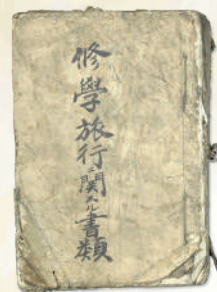 修學旅行ニ関スル書類